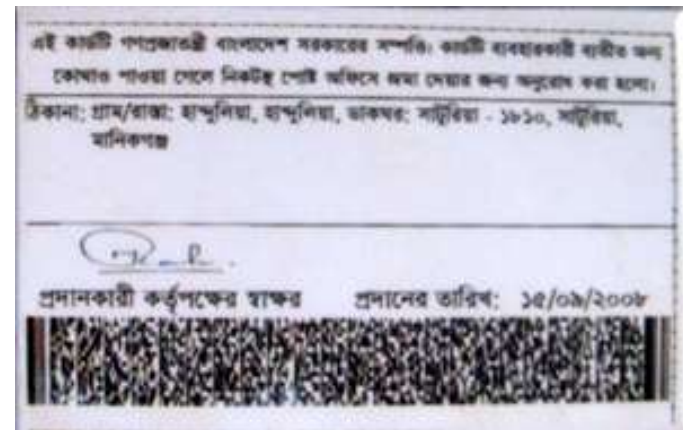 এই কার্ডটি গণপ্রজাতন্ত্রী বাংলাদেশ সরকারের সম্পত্তি। কার্ডটি ব্যবহারকারী ব্যতীত অন্য
কোথাও পাওয়া গেলে নিকটস্থ পোষ্ট অফিসে জমা দেয়ার জন্য অনুরোধ করা হলো।
ঠিকানা: গ্রাম/রাস্তা: হান্দুলিয়া, হান্দুলিয়া, ডাকঘর: সাটুরিয়া - ১৮১০, সাটুরিয়া,
মানিকগঞ্জ
প্রদানকারী কর্তৃপক্ষের স্বাক্ষর প্রদানের তারিখ: ১৫/০৯/২০০৮